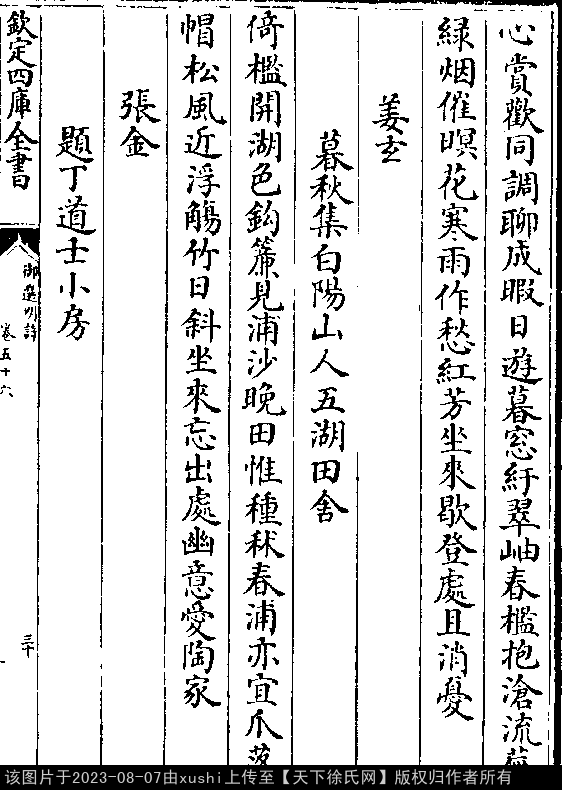 心賞歡同調聊成暇日遊暮窓紆翠岫春檻抱滄流
緑烟催暝花寒雨作愁紅芳坐來歇登處且消憂
姜玄
暮秋集白陽山人五湖田舍
倚檻開湖色鈎簾見浦沙晚田惟種秫春浦亦宜瓜落
帽松風近浮觴竹日斜坐來忘出處幽意愛陶家
張金
題丁道士小房
欽定四庫全書
御選明詩
卷五十六
三十
该图片于2023-08-07由xushi上传至【天下徐氏网】版权归作者所有